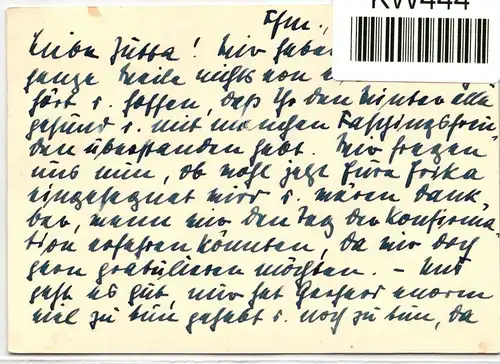 Ehm.,
KW444
Liebe Jutta! Wir haben
ganze Weile nichts von
hört u. hoffen, daß Ihr den Winter alle
gesund u. mit manchen Faschingsfreu-
den überstanden habt. Wir fragen
uns nun, ob wohl jetzt Eure Erika
eingesegnet wird u. wären dank-
bar, wenn wir den Tag der Konfirma-
tion erfahren könnten, da wir doch
gern gratulieren möchten. – Uns
geht es gut, nur hat Gerhard enorm
viel zu tun gehabt u. noch zu tun, da